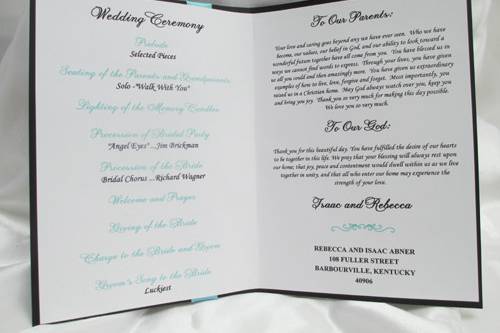 Wedding Ceremony
Prelude
Selected Pieces
Seating of the Parents and Grandparents
Solo -"Walk With You"
Lighting of the Memory Candles
Processional of Bridal Party
"Angel Eyes"...Jim Brickman
Procession of the Bride
Bridal Chorus ...Richard Wagner
Welcome and Prayer
Giving of the Bride
Charge to the Bride and Groom
Groom's Song to the Bride
Luckiest
To Our Parents:
Your love and caring goes beyond any we have ever seen. Who we have
become, our values, our belief in God, and our ability to look toward a
wonderful future together have all come from you. You have blessed us in
ways we cannot find words to express. Through your lives, you have given
us all you could and then amazingly more. You have given us extraordinary
examples of how to live, love, forgive and forget. Most importantly, you
raised us in a Christian home. May God always watch over you, keep you
and bring you joy. Thank you so very much for making this day possible.
We love you so very much.
To Our God:
Thank you for this beautiful day. You have fulfilled the desire of our hearts
to be together in life. We pray that your blessing will always rest upon
our home; that joy, peace and contentment would dwell within us as we live
together in unity, and that all who enter our home may experience the
strength of your love.
Isaac and Rebecca
REBECCA AND ISAAC ABNER
108 FULLER STREET
BARBOURVILLE, KENTUCKY
40906